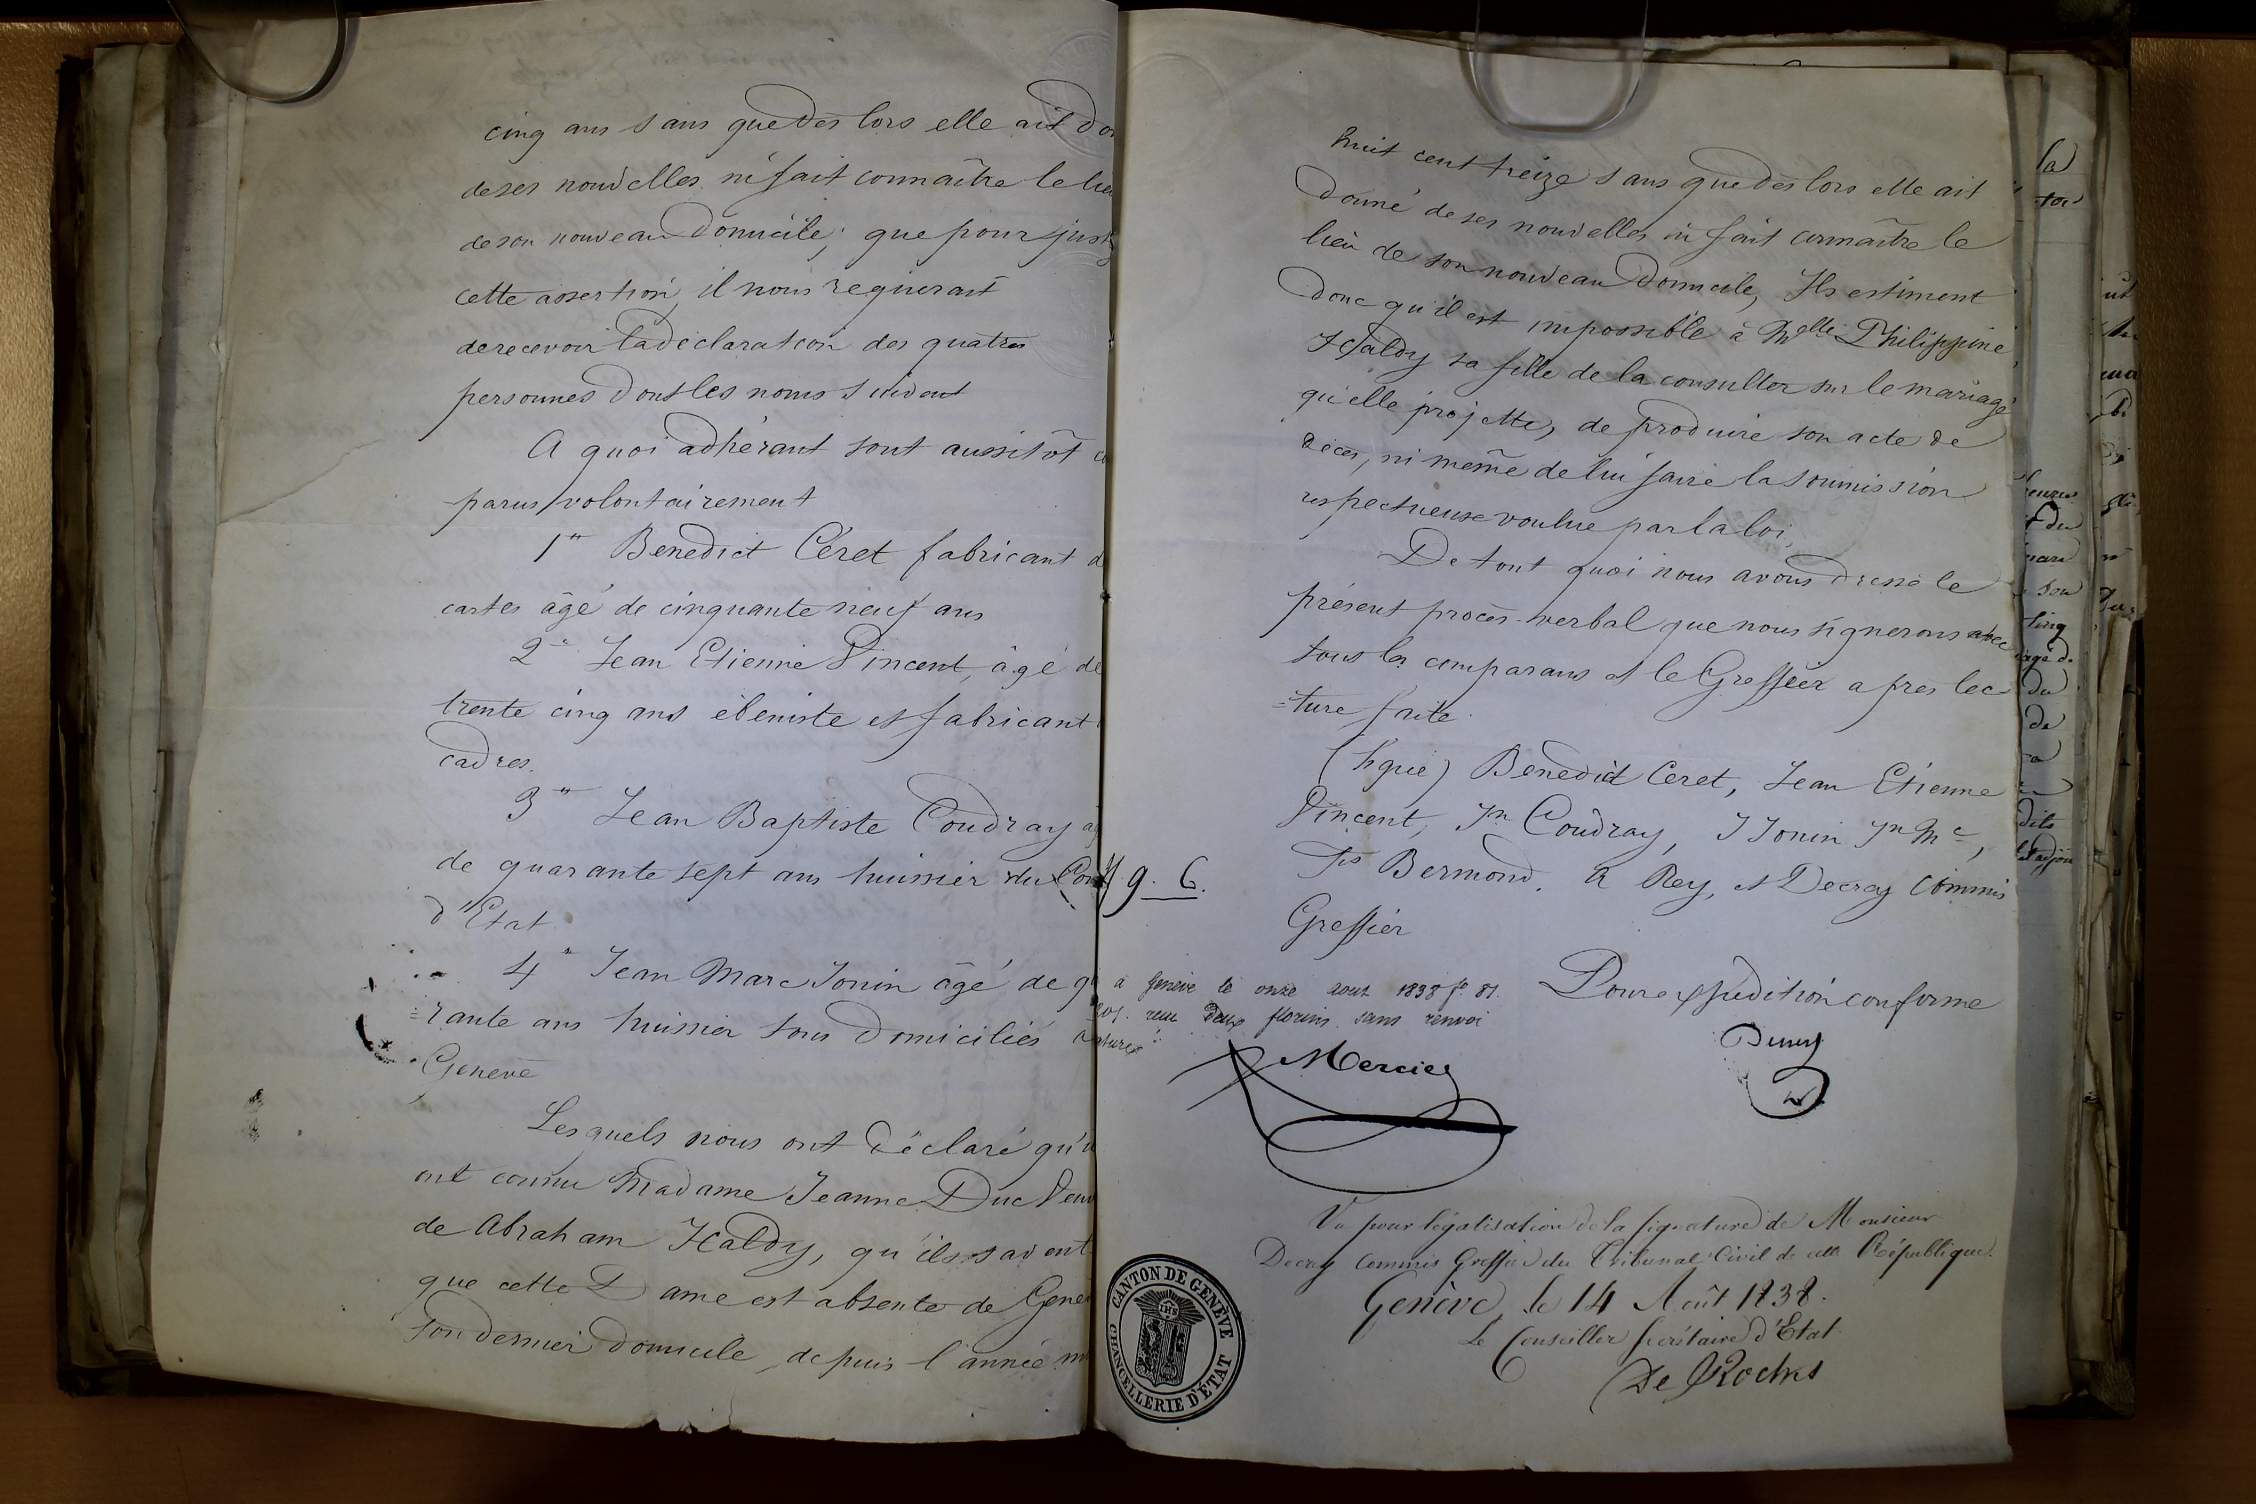 cinq ans sans que dès lors elle ait don
de ses nouvelles ni fait connaître le lieu
de son nouveau domicile; que pour just
cette assertion, il nous requerait
de recevoir la déclaration des quatre
personnes dont les noms suivent
A quoi adhérant sont aussitôt co
parus volontairement
1° Benedict Céret fabricant d
cartes âgé de cinquante neuf ans
2° Jean Etienne Vincent, âgé de
trente cinq ans ébeniste et fabricant
cadres.
3° Jean Baptiste Coudray âg
de quarante sept ans huissier du Con
d'Etat
4° Jean Marc Jonin âgé de qu
=rante ans huissier tous domiciliés à
Genève
Lesquels nous ont déclaré qu'il
ont connu Madame Jeanne Duc Veuv
de Abraham Haldy, qu'ils savent
que cette Dame est absente de Genè
son dernier domicile, depuis l'année m
huit cent treize sans que dès lors elle ait
donné de ses nouvelles ni fait connaître le
lieu de son nouveau domicile, Ils estiment
donc qu'il est impossible à Melle Philippine
Haldy sa fille de la consulter sur le mariage
qu'elle projette, de produire son acte de
décès, ni même de lui faire la soumission
respectueuse voulue par la loi,
De tout quoi nous avons dressé le
présent procès-verbal que nous signerons avec
tous les comparans et le Greffier après lec
=ture faite.
(Signé) Benedict Ceret, Jean Etienne
Vincent, Jn Coudray, J Jonin Jn Mc,
Fs Bermond. A Rey, et Decray Commis
Greffier
9. 6.
à Genève le onze aout 1838 fo 81.
reçu deux florins sans renvoi
Mercier
Pour expédition conforme
Vu pour légalisation de la signature de Monsieur
Decray Commis Greffier du Tribunal Civil de cette République.
Genève, le 14 Août 1838.
Le Conseiller Secrétaire d'Etat
De Roches
CANTON DE GENÈVE
IHS
CHANCELLERIE D'ÉTAT